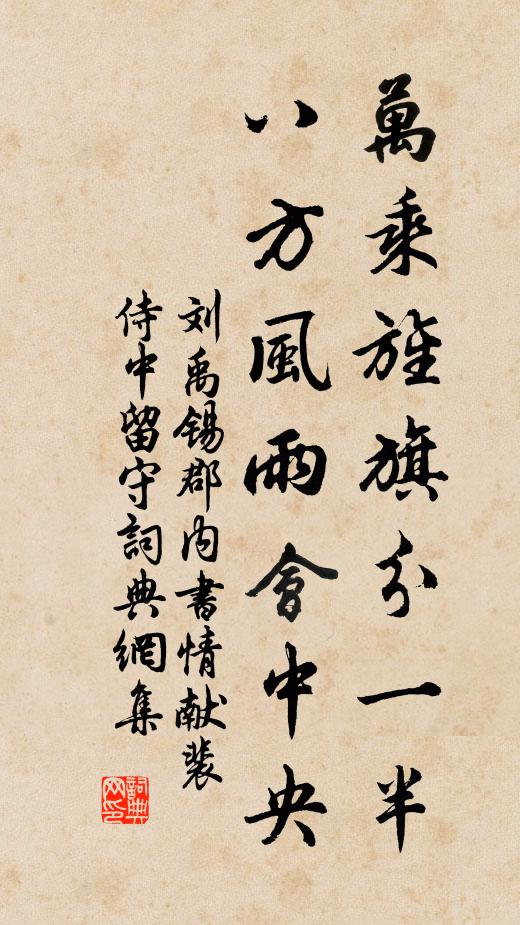 萬乘旌旗分一半
八方風雨會中央
刘禹锡郡内書情献裴
侍中留守詞典網集
詞典网印